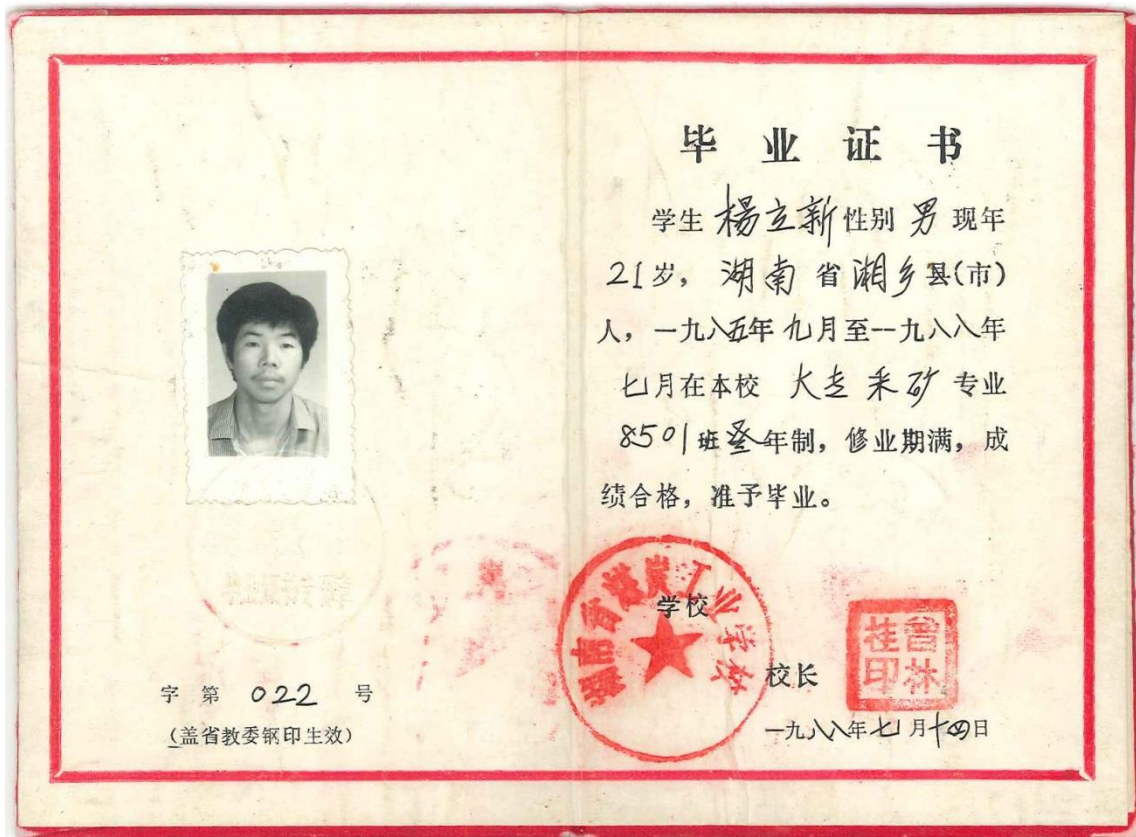 毕业证书
学生 楊立新 性别 男 现年
21岁，湖南省湘乡县(市)
人，一九八五年九月至一九八八年
七月在本校 采矿 专业
8501班叁年制，修业期满，成
绩合格，准予毕业。
湖南省煤炭工业学校
学校
曾林
桂印
校长
一九八八年七月十四日
字 第 022 号
(盖省教委钢印生效)